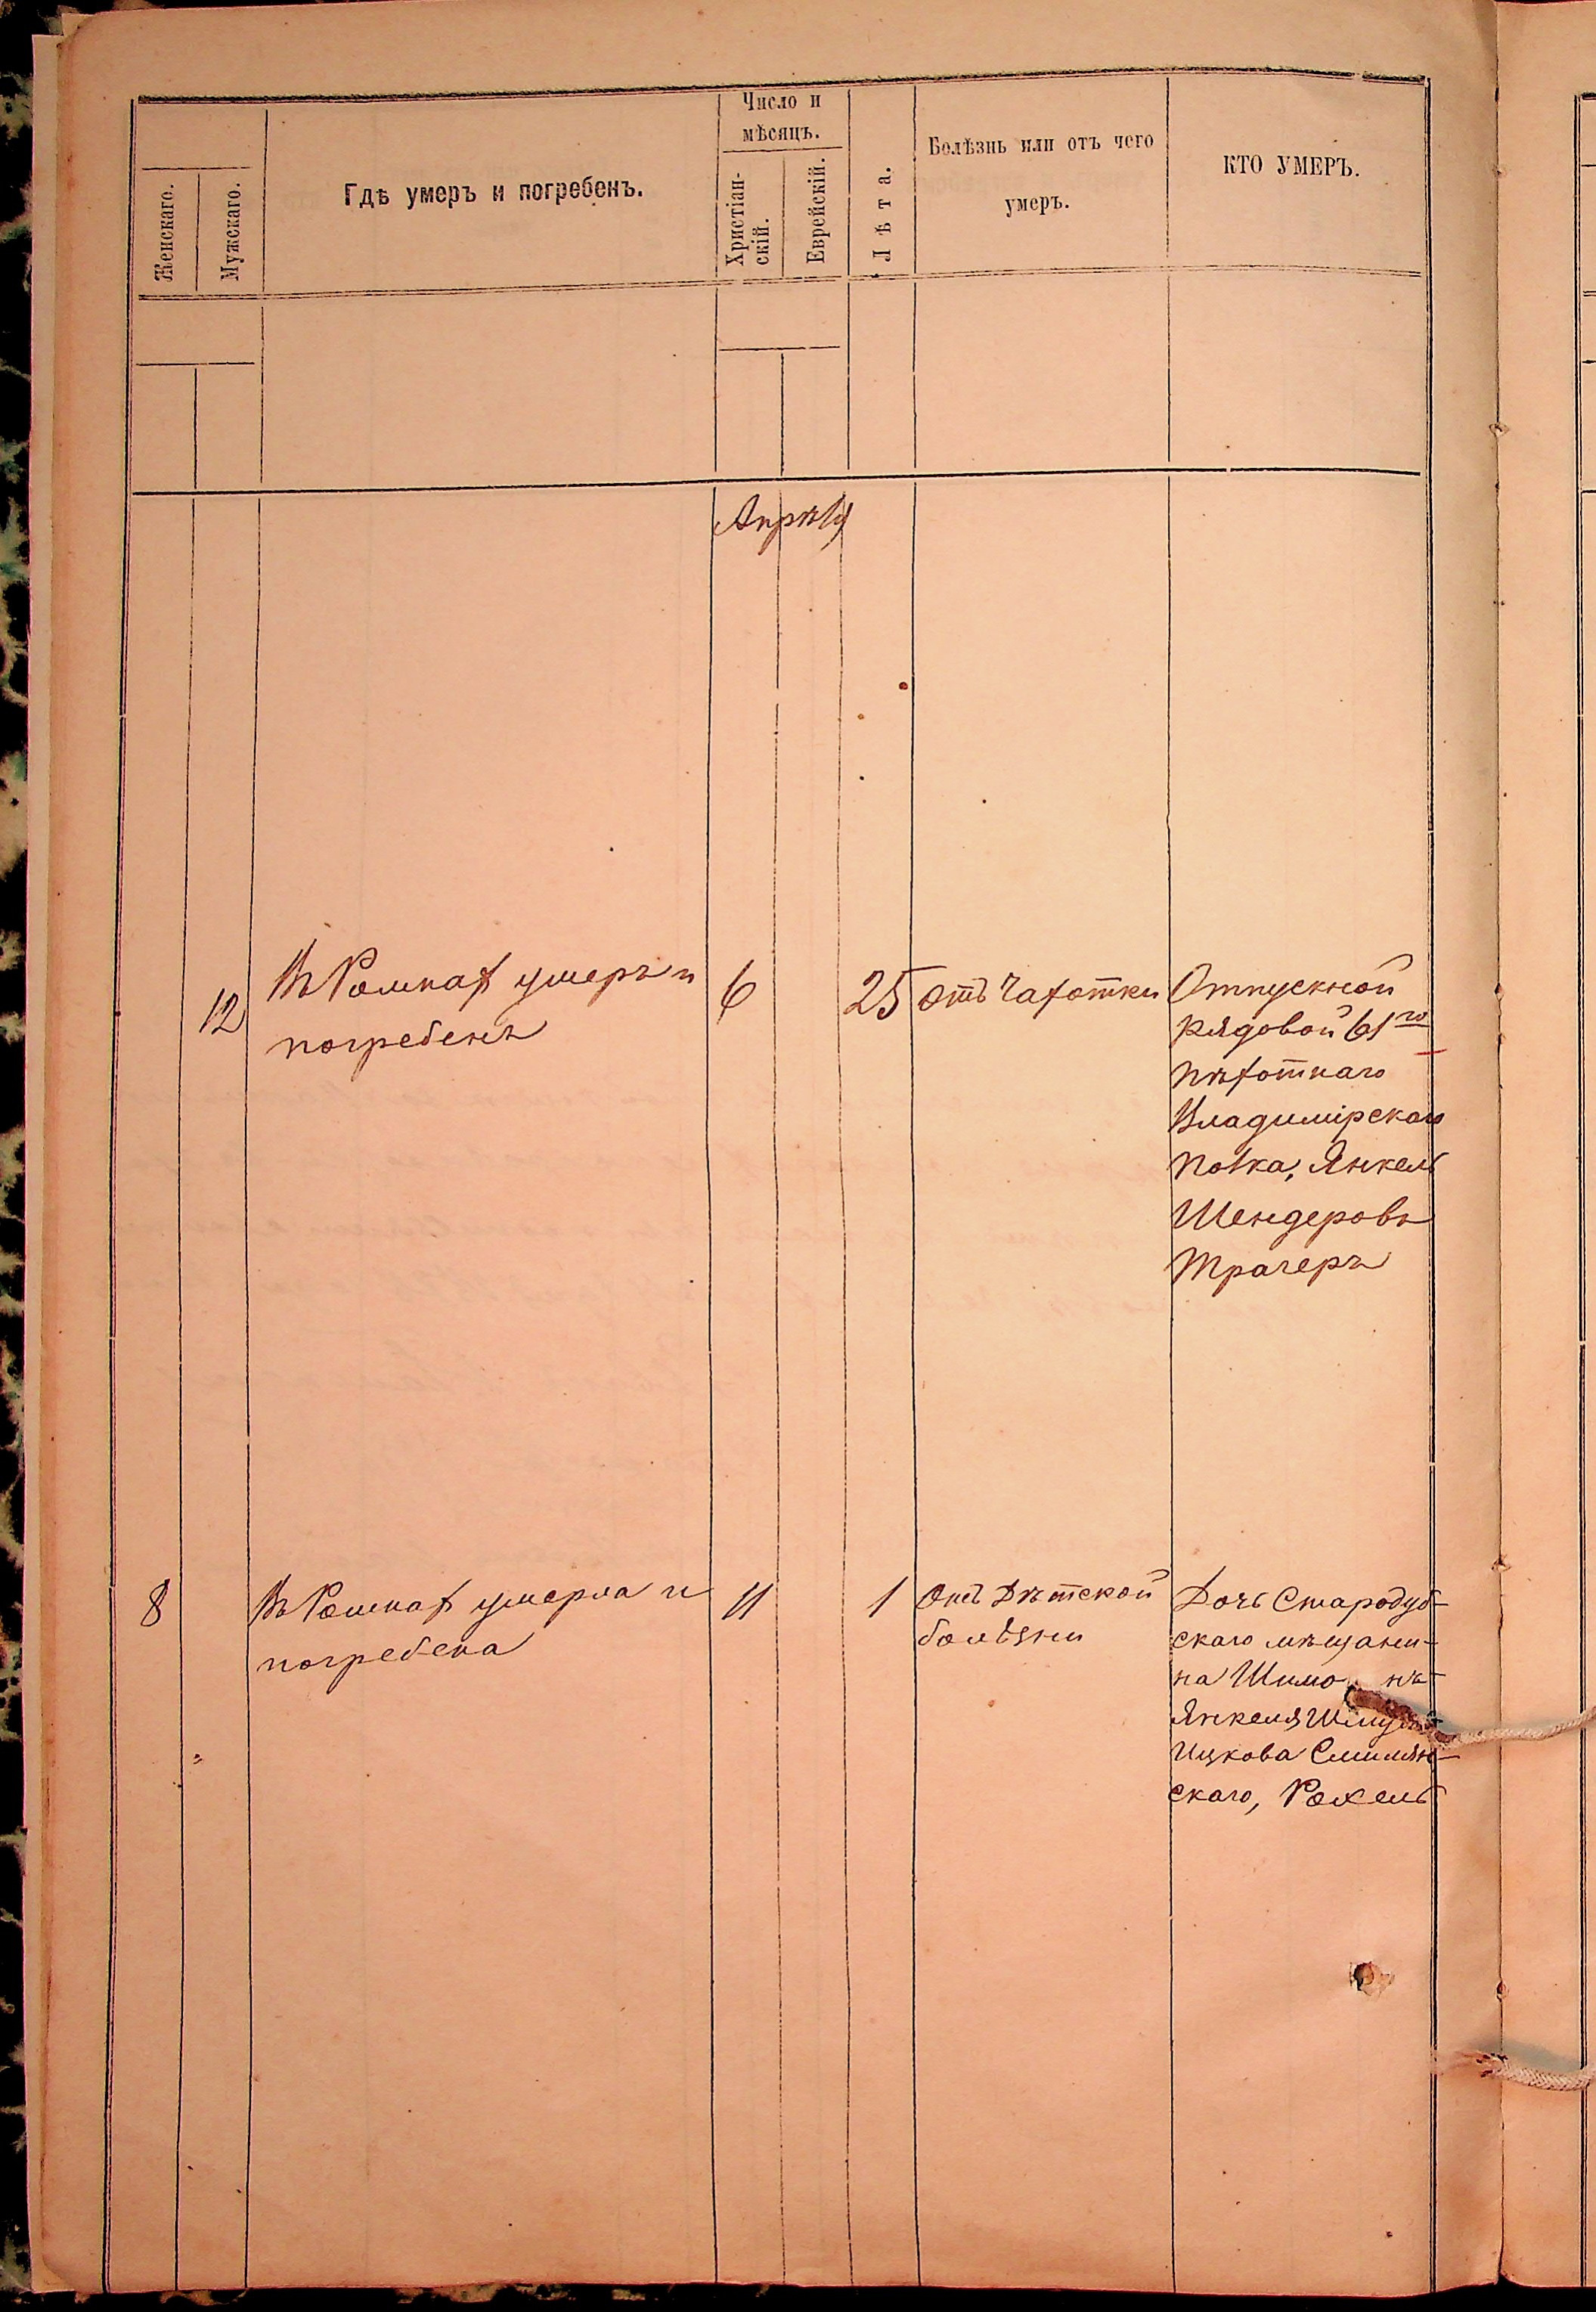 Женскаго.
Мужскаго.
Гдѣ умеръ и погребенъ.
Число и
мѣсяцъ.
Христіан-
скій.
Еврейскій.
Лѣта.
Болѣзнь или отъ чего
умеръ.
КТО УМЕРЪ.
Апрѣль
12
Въ Ромнах умеръ и
погребенъ
6
25
отъ Чахотки
Отпускной
рядовой 61го
пѣхотнаго
Владимірскаго
полка, Янкель
Шендеровъ
Трагеръ
8
Въ Ромнах умерла и
погребена
11
1
Отъ Дѣтской
болѣзни
Дочь Стародуб-
скаго мѣщани-
на
Янкеля
Ицкова Смилян-
скаго, Рохель